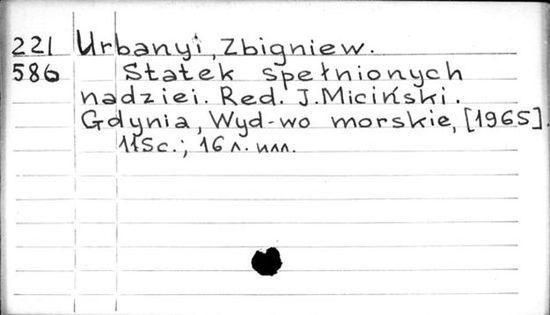 221 Urbanyi, Zbigniew.
586 Statek spełnionych
nadziei. Red. J. Miciński.
Gdynia, Wyd-wo morskie, [1965].
115с.; 16 л. илл.